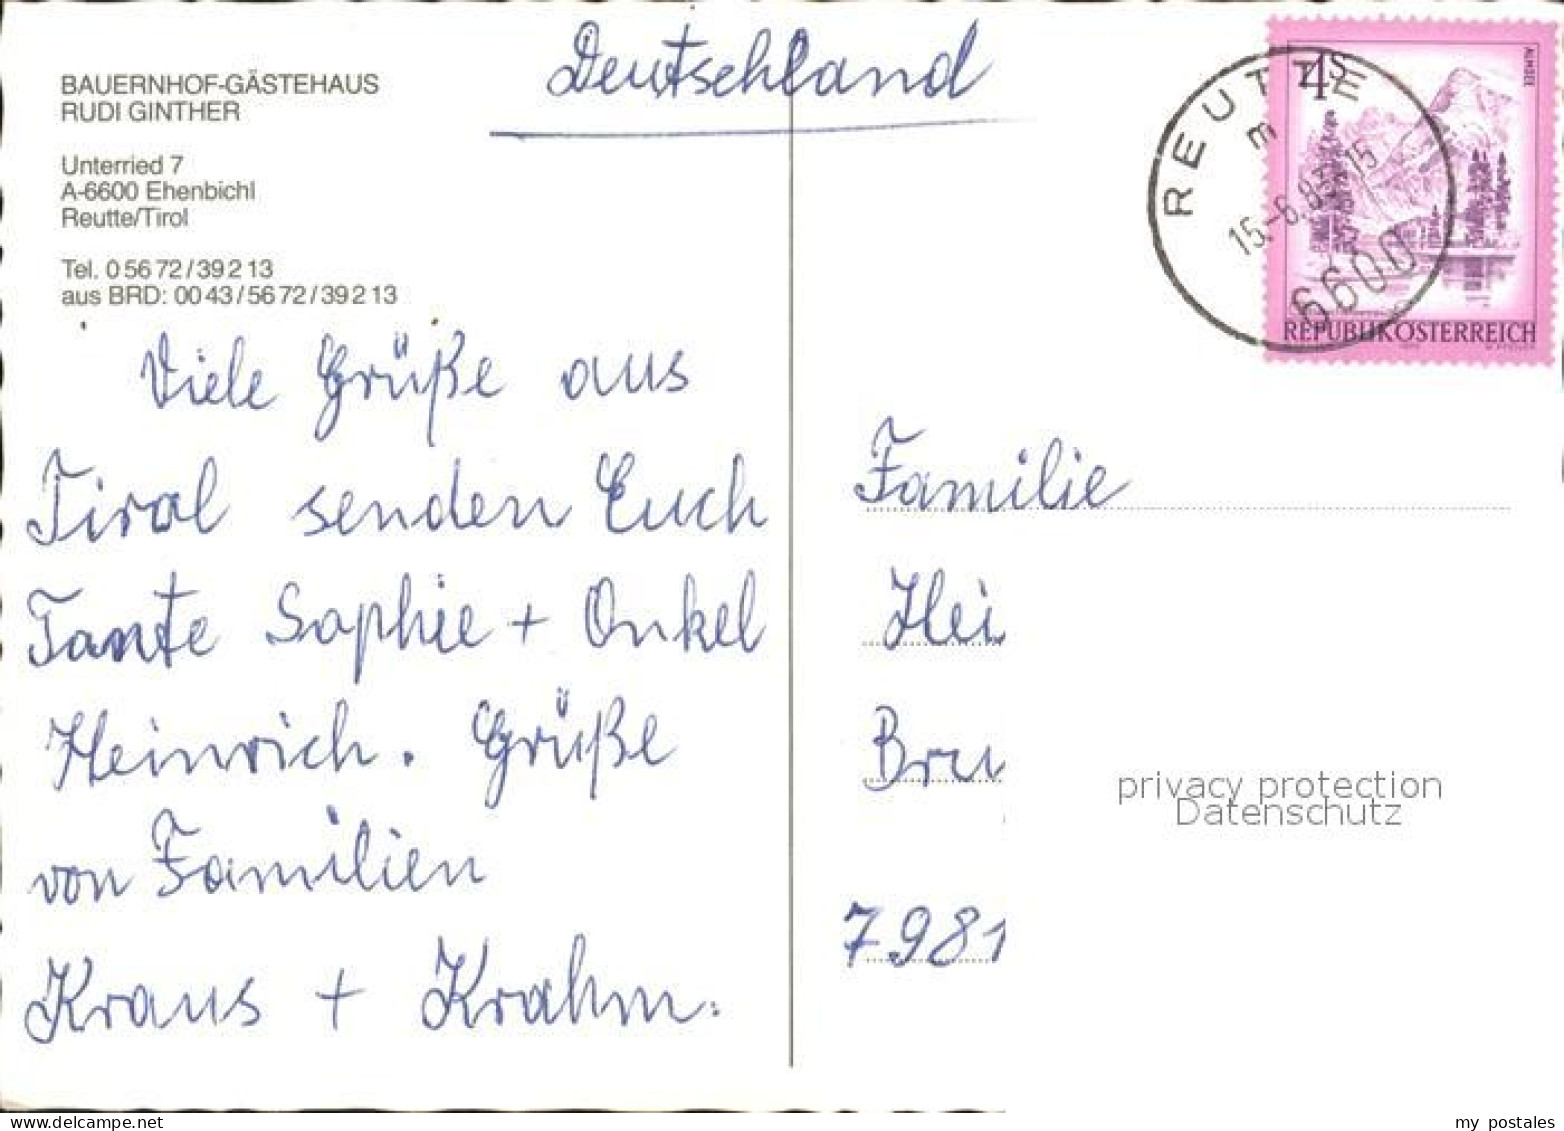 Deutschland
BAUERNHOF-GÄSTEHAUS
RUDI GINTHER
Unterried 7
A-6600 Ehenbichl
Reutte/Tirol
Tel. 0 56 72 / 39 2 13
aus BRD: 00 43 / 56 72 / 39 2 13
Viele Grüße aus
Tirol senden Euch
Tante Sophie + Onkel
Heinrich. Grüße
von Familien
Kraus + Krahm.
4 S
ALMSEE
REPUBLIK ÖSTERREICH
REUTTE
m
15.-6.
15
6600
Familie
Hei
Bru
7981
privacy protection
Datenschutz
my postales